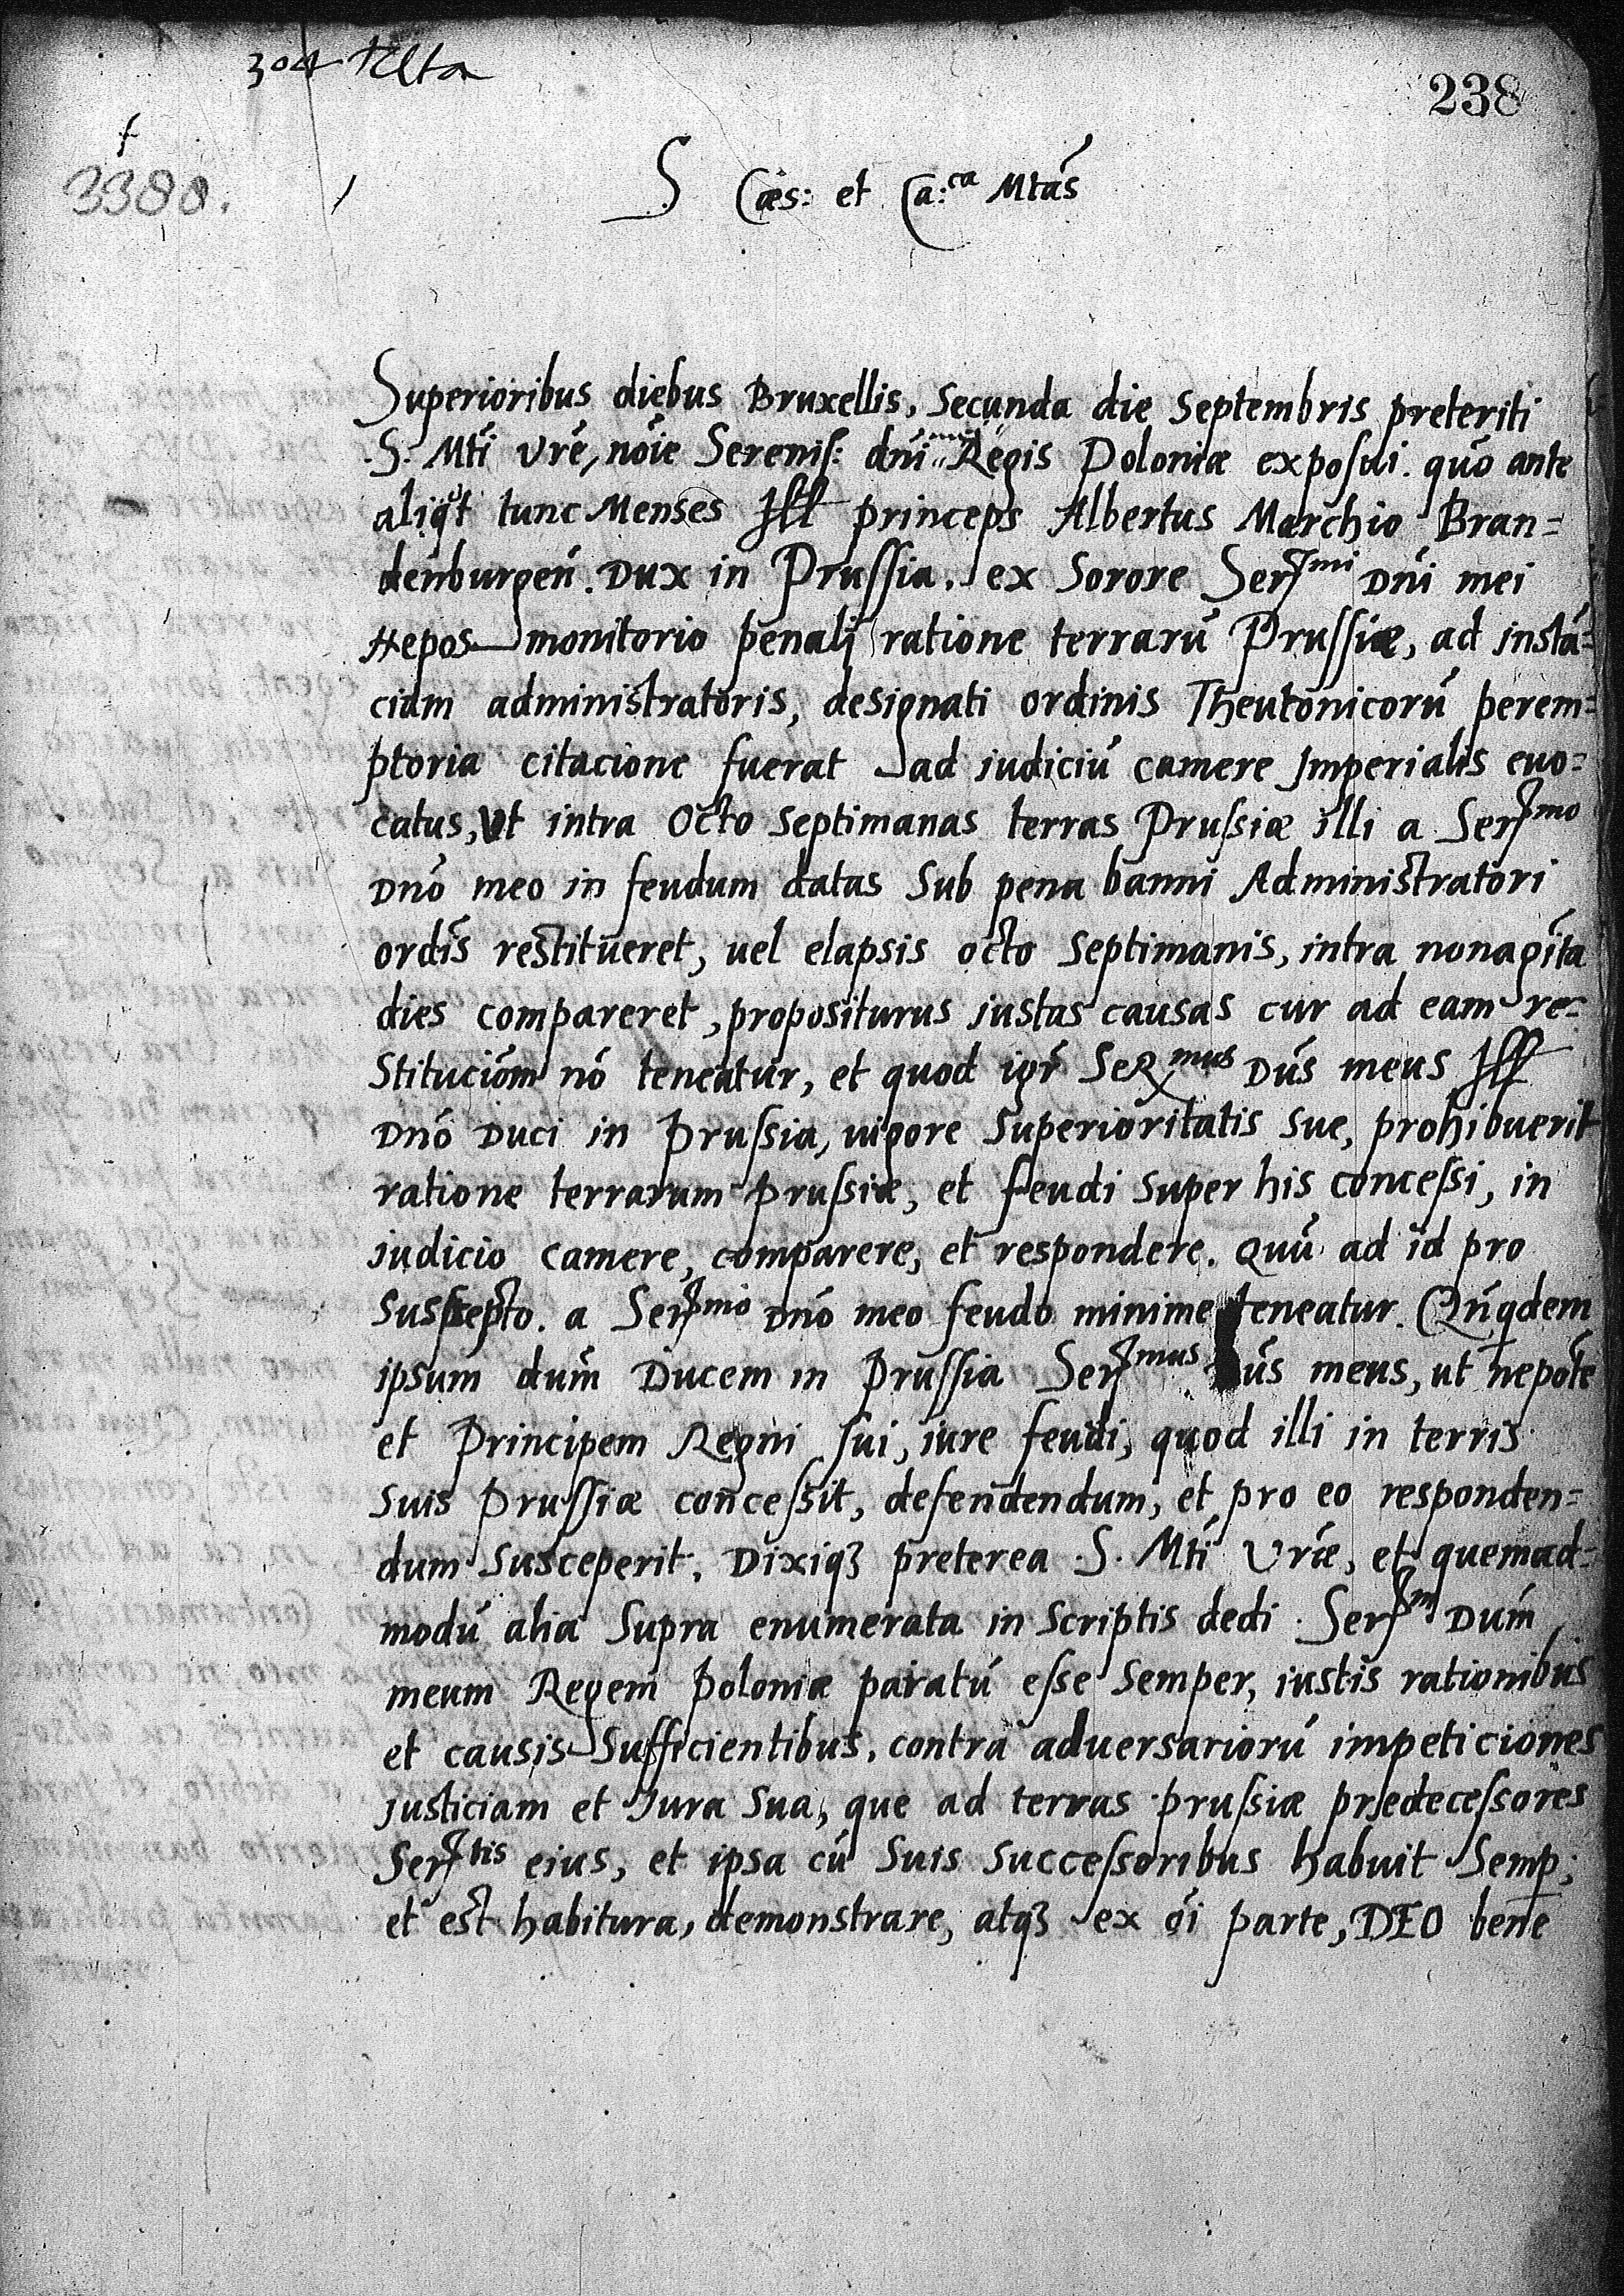 304
238
3388.
S Cæs: et Ca:ca Mtas
Superioribus diebus Bruxellis, Secunda die Septembris preteriti
.S. Mti vre, noie Sereniss: dni mei Regis Poloniæ exposui. quo ante
aliqt tunc Menses Ill princeps Albertus Marchio Bran=
denburgen. Dux in Prussia. ex Sorore Sermi Dni mei
Nepos monitorio penali ratione terrarū Prussiæ, ad instā=
ciam administratoris, designati ordinis Theutonicorū perem=
ptoria citacione fuerat ad iudiciū camere Imperialis euo=
catus, Vt intra Octo Septimanas terras Prussiæ illi a Sermo
Dno meo in feudum datas Sub pena banni Administratori
ordis restitueret, uel elapsis octo Septimanis, intra nonagita
dies compareret, propositurus iustas causas cur ad eam re-
Stitucióm nō teneatur, et quod igr Sermus Dūs meus Ill
Dno Duci in Prussia, uigore Superioritatis sue, prohibuerit
ratione terrarum Prussiæ, et feudi Super his concessi, in
iudicio camere, comparere, et respondere. Quū ad id pro
Suscepto. a Sermo Dno meo feudo minime teneatur. Qnqdem
ipsum dum Ducem in Prussia Sermus Dūs meus, ut nepote
et Principem Regni sui, iure feudi, quod illi in terris
Suis Prussiæ concessit, defendendum, et pro eo responden=
dum Susceperit. Dixiqȝ preterea .S. Mti Vræ, et quemad=
modū alia Supra enumerata in Scriptis dedi. Serm Dum
meum Regem Poloniæ paratū esse Semper, iustis rationibus
et causis Sufficientibus, contra aduersariorū impeticiones
justiciam et Jura Sua, que ad terras prussiæ predecessores
Sertis eius, et ipsa cū Suis Successoribus habuit Semp;
et est habitura, demonstrare, atqȝ ex oi parte, DEO bene